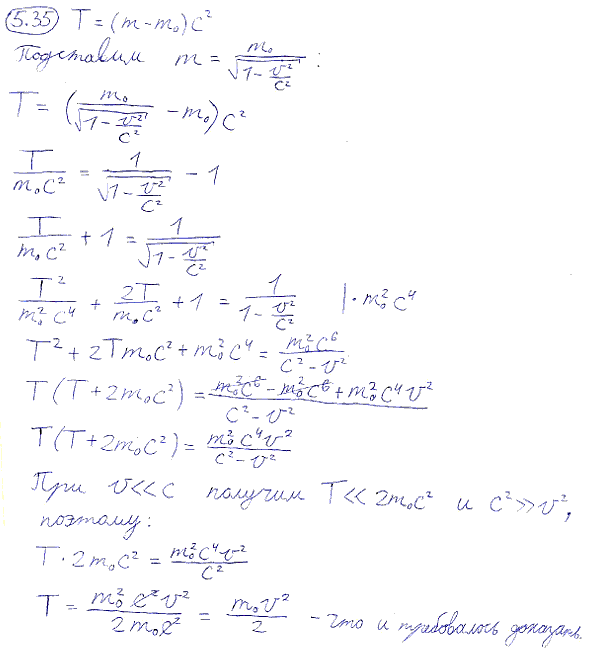 5.35 T = (m - m₀)c²
Подставим m = m₀/√(1 - v²/c²) :
T = (m₀/√(1 - v²/c²) - m₀)c²
T/(m₀c²) = 1/√(1 - v²/c²) - 1
T/(m₀c²) + 1 = 1/√(1 - v²/c²)
T²/(m₀²c⁴) + 2T/(m₀c²) + 1 = 1/(1 - v²/c²) | · m₀²c⁴
T² + 2Tm₀c² + m₀²c⁴ = m₀²c⁶/(c² - v²)
T(T + 2m₀c²) = (m₀²c⁶ - m₀²c⁶ + m₀²c⁴v²)/(c² - v²)
T(T + 2m₀c²) = m₀²c⁴v²/(c² - v²)
При v << c получим T << 2m₀c² и c² >> v²,
поэтому:
T · 2m₀c² = m₀²c⁴v²/c²
T = m₀²c²v²/(2m₀c²) = m₀v²/2 - что и требовалось доказать.